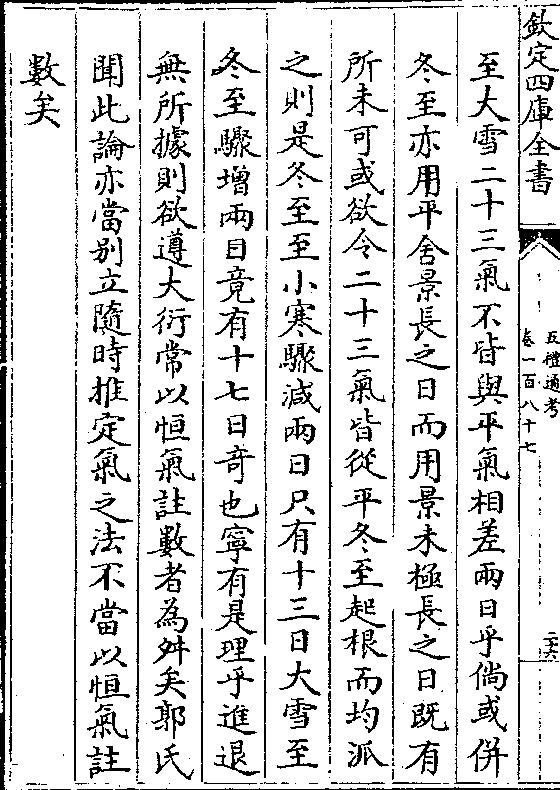 欽定四庫全書
五禮通考
卷一百八十七
二六
至大雪二十三氣不皆與平氣相差兩日乎倘或併
冬至亦用平舍景長之日而用景未極長之日既有
所未可或欲令二十三氣皆從平冬至起根而均派
之則是冬至至小寒驟減兩日只有十三日大雪至
冬至驟增兩日竟有十七日竒也寧有是理乎進退
無所據則欲遵大衍常以恒氣註數者為舛矣郭氏
聞此論亦當别立隨時推定氣之法不當以恒氣註
數矣